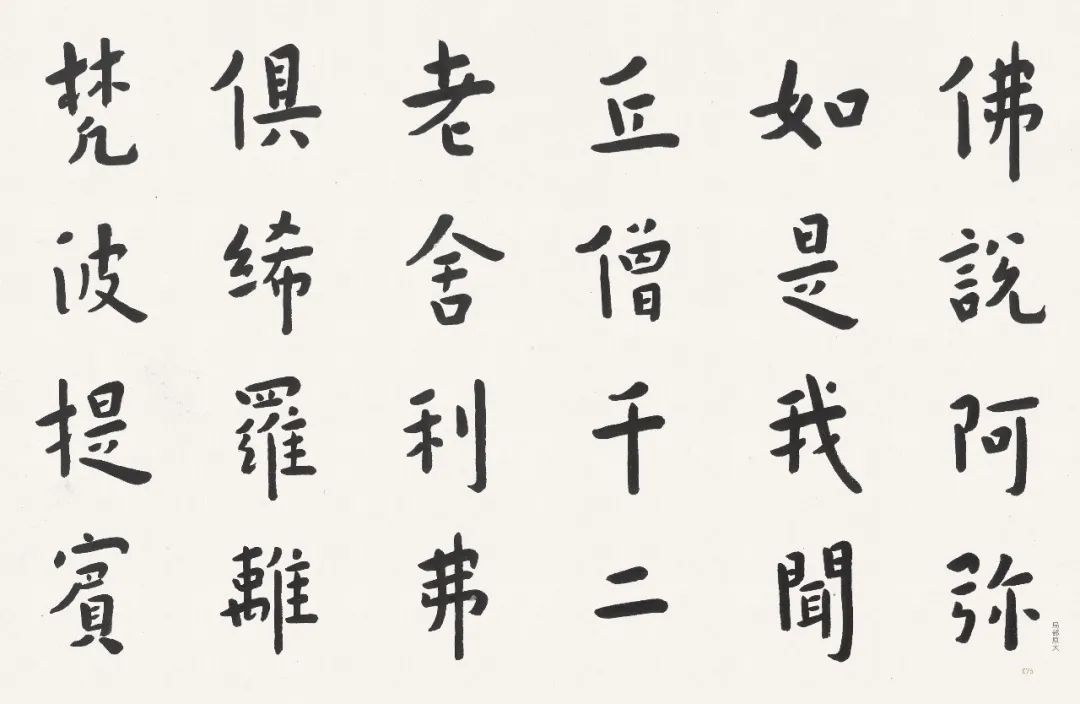 佛說阿弥
如是我聞
丘僧千二
老舍利弗
俱絺羅離
梵波提賓
局部原大